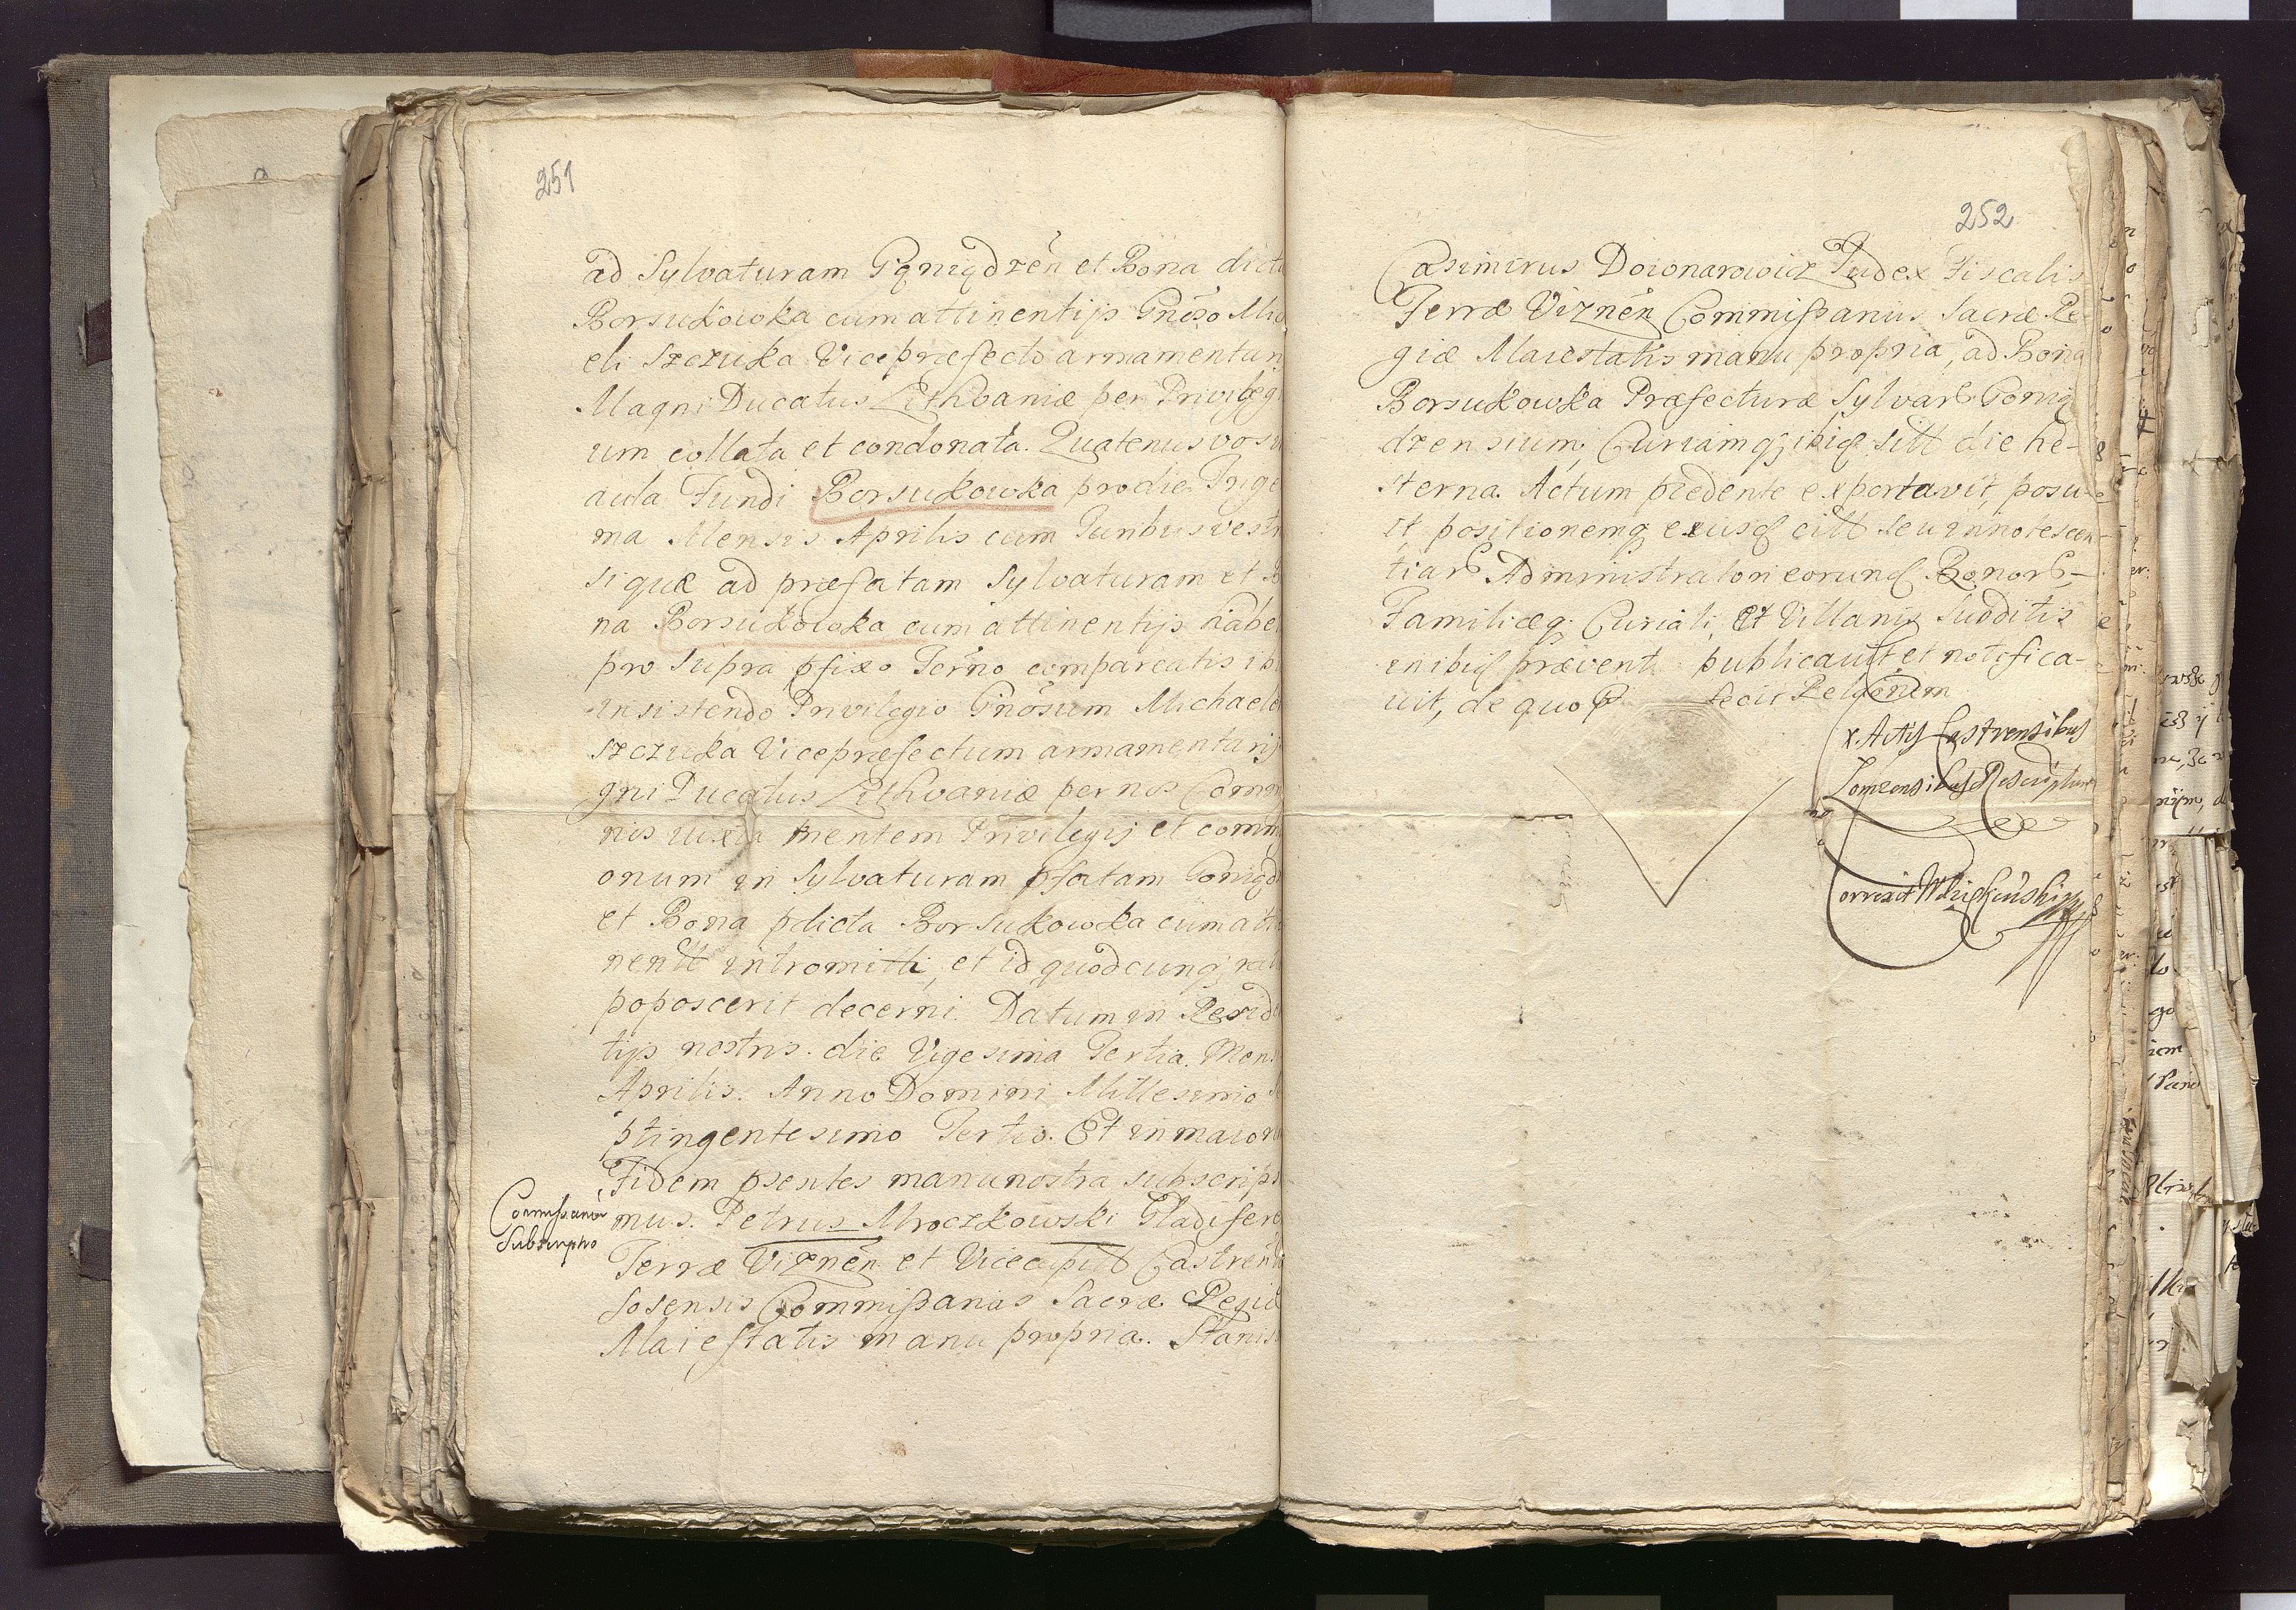 251
ad Sylvaturam Goniądzen̄ et Bona dicta
Borsukowka cum attinentijs Gn̄oso Mic
eli Szczuka Vicepræfecto armamentari
Magni Ducatus Lithvaniæ per Privileg
um collata et condonata. Quatenus vos in
aula Fundi Borsukowka pro die Trige
ma Mensis Aprilis cum Juribus vestr
si quæ ad præfatam Sylvaturam et Bo
na Borsukowka cum attinentijs habe
pro supra pfixo Termo compareatis ibi
insistendo Privilegio Gnōsum Michaele
Szczuka Vicepræfectum armamentarij
gni Ducatus Lithvaniæ per nos Comm
nis iuxta mentem Privilegij et comm
onum in Sylvaturam pfatam Goniądz
et Bona pdicta Borsukowka cum atti
nentt intromitti, et id quodcunq; rati
poposcerit decerni. Datum in Resid
tijs nostris. die Vigesima Tertia. Mens
Aprilis. Anno Domini Millesimo Se
ptingentesimo Tertio. Et in maiore
Fidem psentes manu nostra subscrips
Commissarior
Subscriptio
mus. Petrus Mroczkowski Gladifer
Terræ Viznen̄ et Vicecapitt Castren
sosensis Commißarius Sacræ Regiæ
Maiestatis manu propria. Stanis
252
Casimirus Doionarowicz Judex Fiscalis
Terræ Viznen̄ Commißarius Sacræ Re-
giæ Maiestatis manu propria, ad Bona
Borsukowka Præfecturæ Sylvar Gonią
dzensium, Curiamq; ibiq sitt die he-
sterna. Actum pcedente exportavit, posu-
it positionemq eiusq citt seu innotescen-
tiar Administratori eorund Bonor-
Familiæq. Curiali, et Villanis subditis
inibiq prævent publicavit et notifica-
uit, de quo fecit Relnem
Ex Actis Castrensibus
Lomzensibus Rescriptum
Correxit